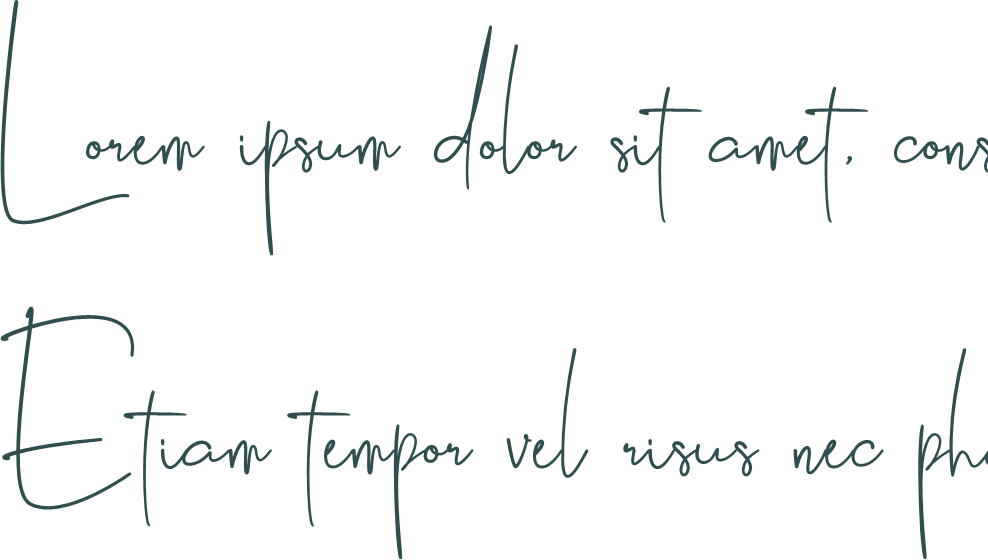 Lorem ipsum dolor sit amet, cons
Etiam tempor vel risus nec pha